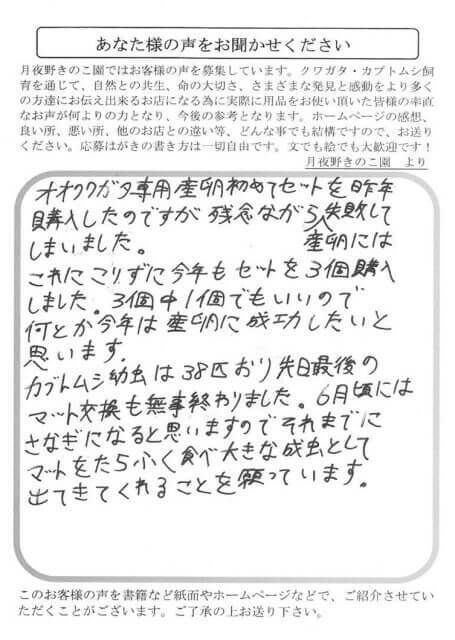 あなた様の声をお聞かせください
月夜野きのこ園ではお客様の声を募集しています。クワガタ・カブトムシ飼
育を通じて、自然との共生、命の大切さ、さまざまな発見と感動をより多く
の方達にお伝え出来るお店になる為に実際に用品をお使い頂いた皆様の率直
なお声が何よりの力となり、今後の参考となります。ホームページの感想、
良い所、悪い所、他のお店との違い等、どんな事でも結構ですので、お送り
ください。応募はがきの書き方は一切自由です。文でも絵でも大歓迎です！
月夜野きのこ園　より
オオクワガタ専用産卵初めてセットを昨年
購入したのですが 残念ながら失敗して
しまいました。
産卵には
これにこりずに今年もセットを3個購入
しました。3個中1個でもいいので
何とか今年は産卵に成功したいと
思います.
カブトムシ幼虫は38匹おり先日最後の
マット交換も無事終わりました。6月頃には
さなぎになると思いますのでそれまでに
マットをたらふく食べ大きな成虫として
出てきてくれることを願っています。
このお客様の声を書籍など紙面やホームページなどで、ご紹介させてい
ただくことがございます。ご了承の上お送り下さい。